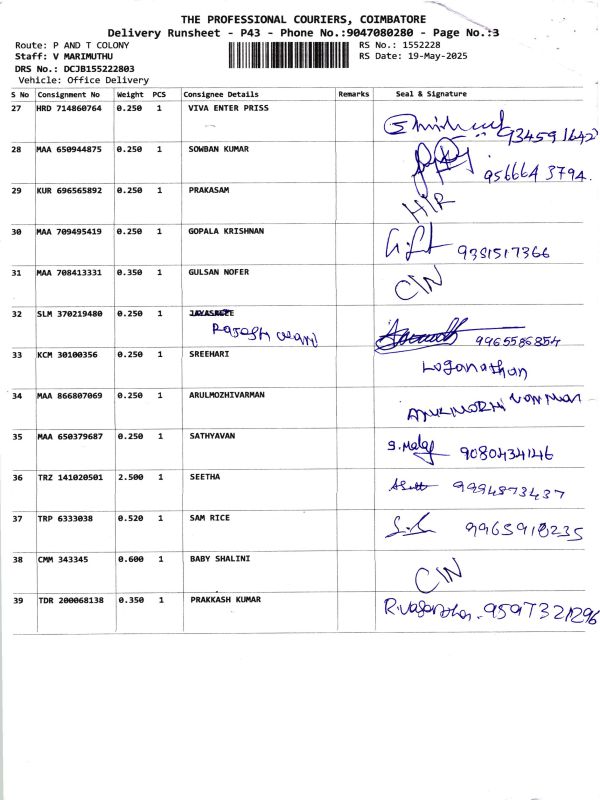 THE PROFESSIONAL COURIERS, COIMBATORE
Delivery Runsheet - P43 - Phone No.:9047080280 - Page No.:3
Route: P AND T COLONY
RS No.: 1552228
Staff: V MARIMUTHU
RS Date: 19-May-2025
DRS No.: DCJB155222803
Vehicle: Office Delivery
S No Consignment No Weight PCS Consignee Details Remarks Seal & Signature
27 HRD 714860764 0.250 1 VIVA ENTER PRISS
9345916427
28 MAA 650944875 0.250 1 SOWBAN KUMAR
9566643794.
29 KUR 696565892 0.250 1 PRAKASAM
30 MAA 709495419 0.250 1 GOPALA KRISHNAN
9381517366
31 MAA 708413331 0.350 1 GULSAN NOFER
32 SLM 370219480 0.250 1
9965586854
33 KCM 30100356 0.250 1 SREEHARI
Loganathan
34 MAA 866807069 0.250 1 ARULMOZHIVARMAN
35 MAA 650379687 0.250 1 SATHYAVAN
9080434146
36 TRZ 141020501 2.500 1 SEETHA
9994873437
37 TRP 6333038 0.520 1 SAM RICE
9965918235
38 CMM 343345 0.600 1 BABY SHALINI
39 TDR 200068138 0.350 1 PRAKKASH KUMAR
9597321296